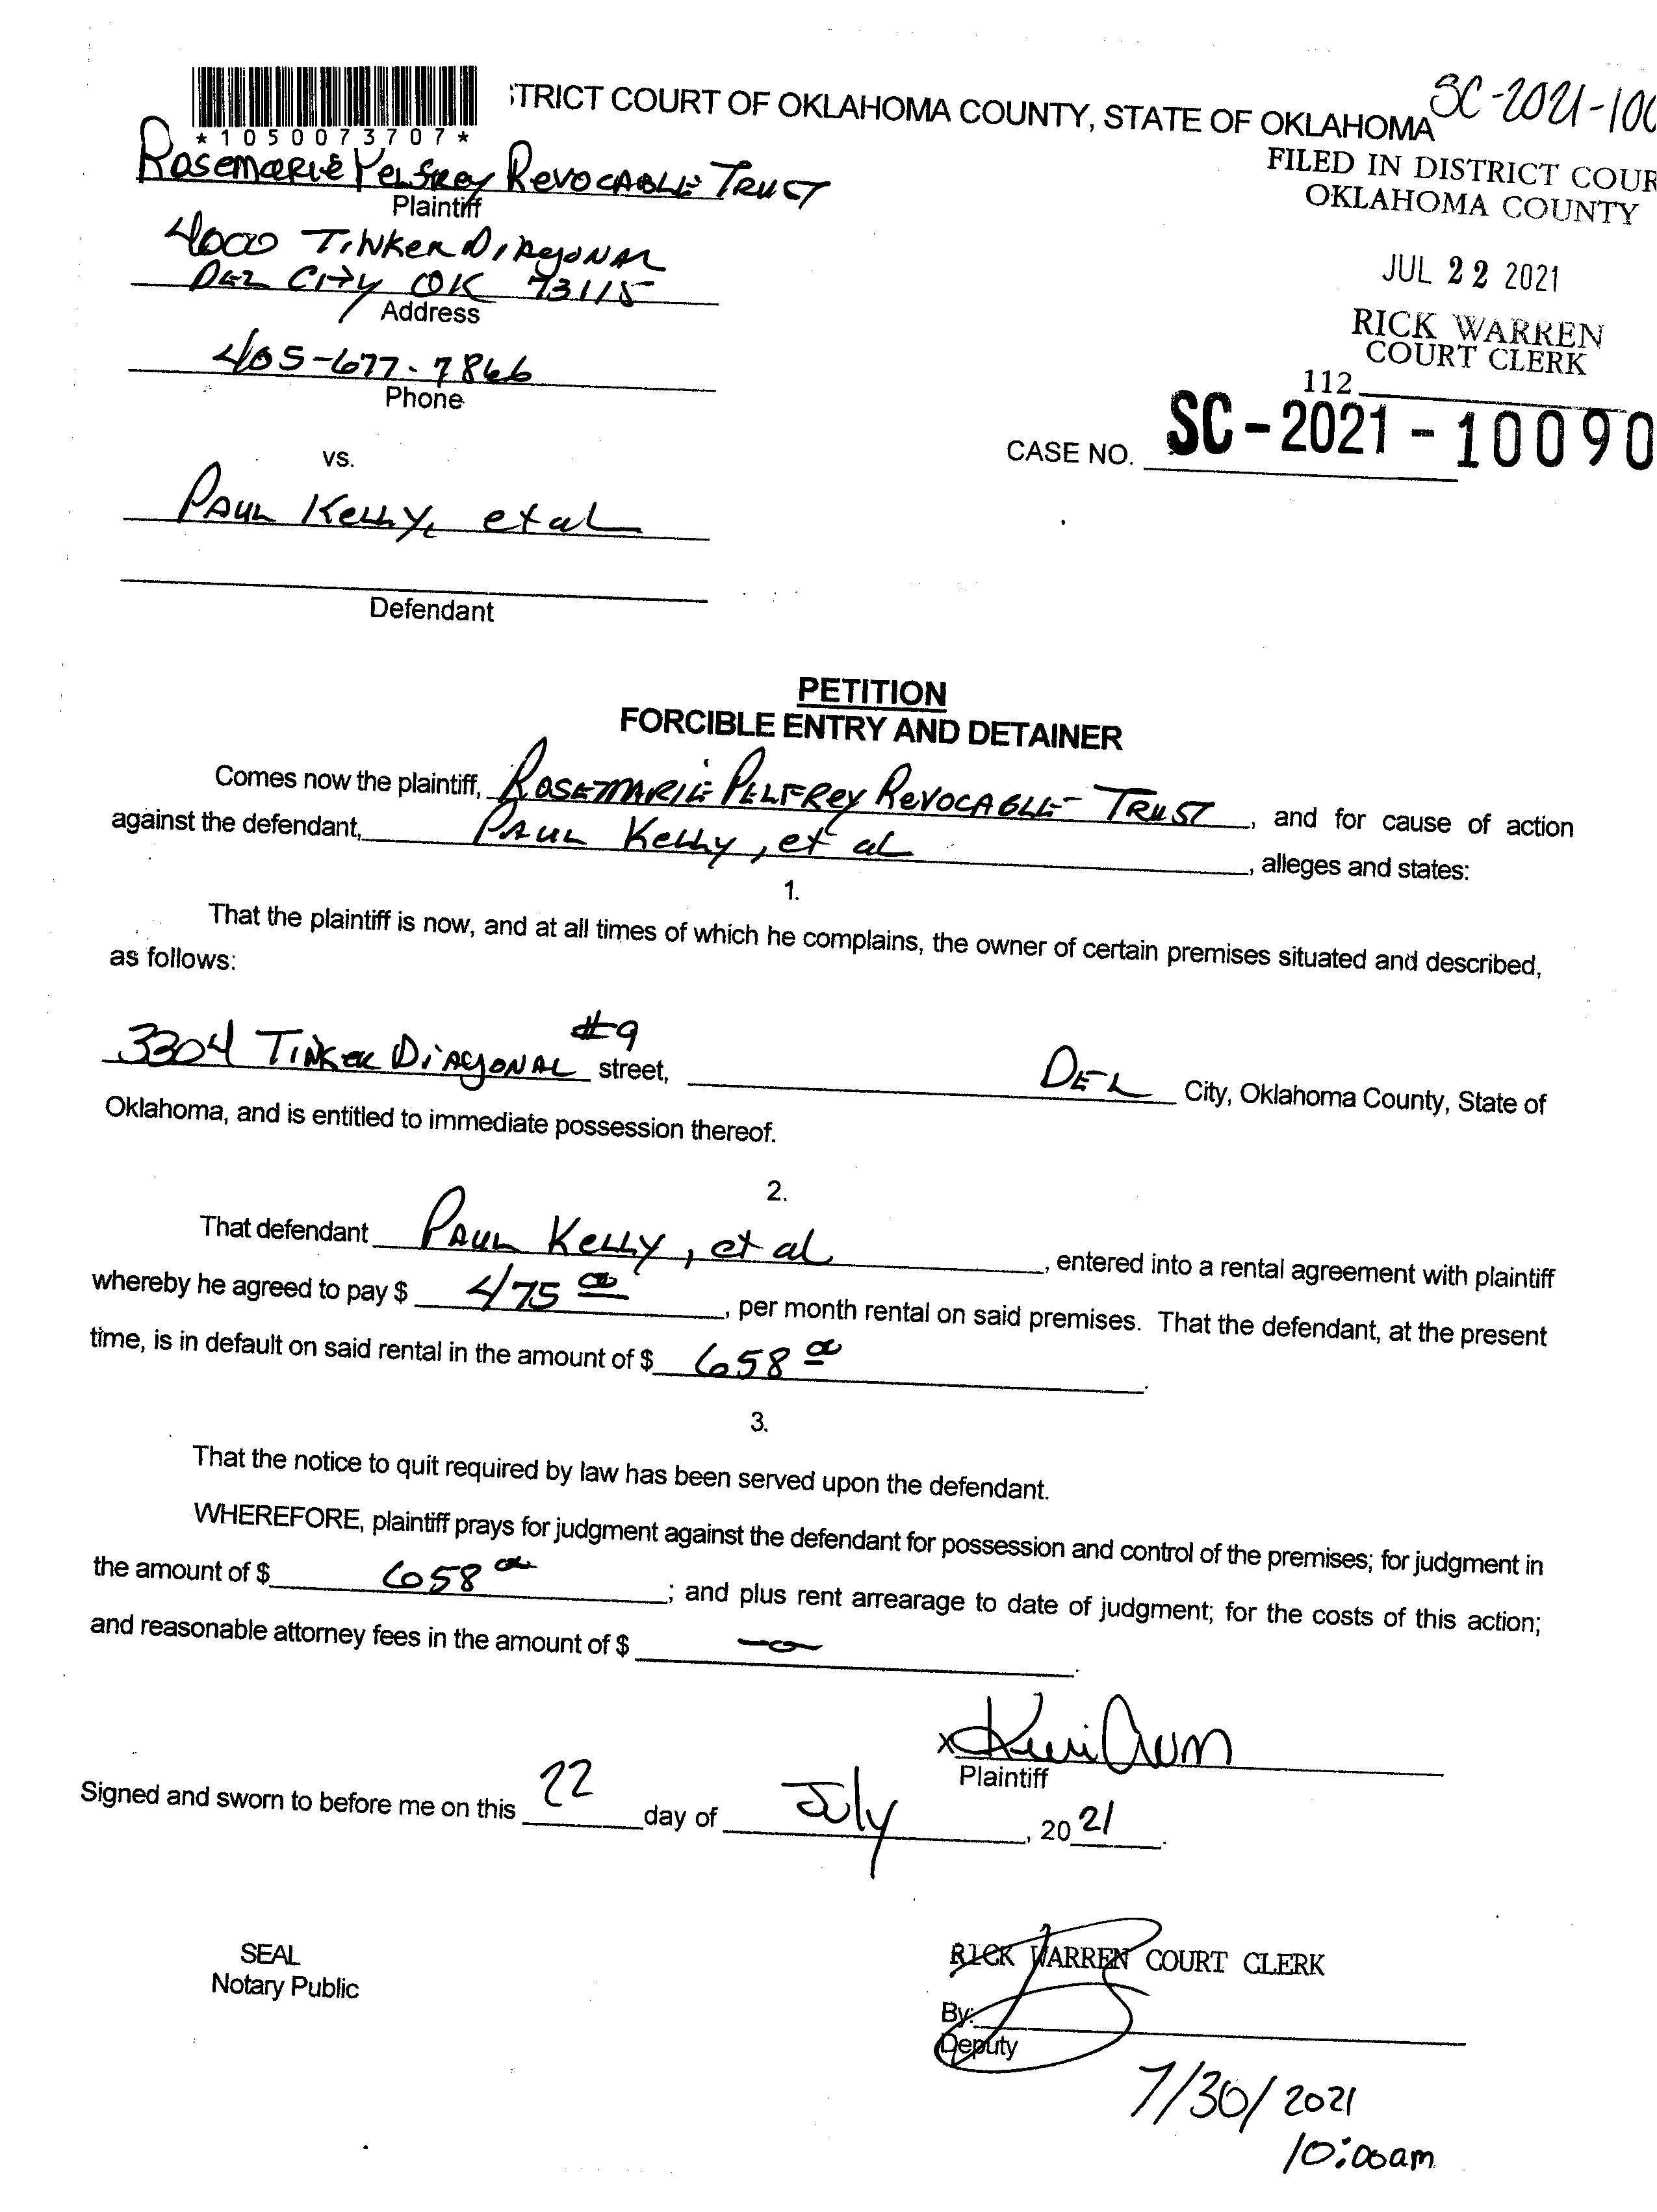 STRICT COURT OF OKLAHOMA COUNTY, STATE OF OKLAHOMA
SC-2021-100
*1050073707*
FILED IN DISTRICT COUR
OKLAHOMA COUNTY
Rosemarie Pelfrey Revocable Trust
Plaintiff
4000 Tinker Diagonal
Del City OK 73115
Address
JUL 22 2021
RICK WARREN
COURT CLERK
405-677-7866
Phone
112
CASE NO. SC-2021-10090
vs.
Paul Kelly, et al
Defendant
PETITION
FORCIBLE ENTRY AND DETAINER
Comes now the plaintiff, Rosemarie Pelfrey Revocable Trust, and for cause of action
against the defendant, Paul Kelly, et al, alleges and states:
1.
That the plaintiff is now, and at all times of which he complains, the owner of certain premises situated and described,
as follows:
3304 Tinker Diagonal #9 street, Del City, Oklahoma County, State of
Oklahoma, and is entitled to immediate possession thereof.
2.
That defendant Paul Kelly, et al, entered into a rental agreement with plaintiff
whereby he agreed to pay $ 475 00, per month rental on said premises. That the defendant, at the present
time, is in default on said rental in the amount of $ 658 00.
3.
That the notice to quit required by law has been served upon the defendant.
WHEREFORE, plaintiff prays for judgment against the defendant for possession and control of the premises; for judgment in
the amount of $ 658 00; and plus rent arrearage to date of judgment; for the costs of this action;
and reasonable attorney fees in the amount of $ -0-.
x
Plaintiff
Signed and sworn to before me on this 22 day of July, 2021.
SEAL
Notary Public
RICK WARREN COURT CLERK
By:
Deputy
7/30/2021
10:00am